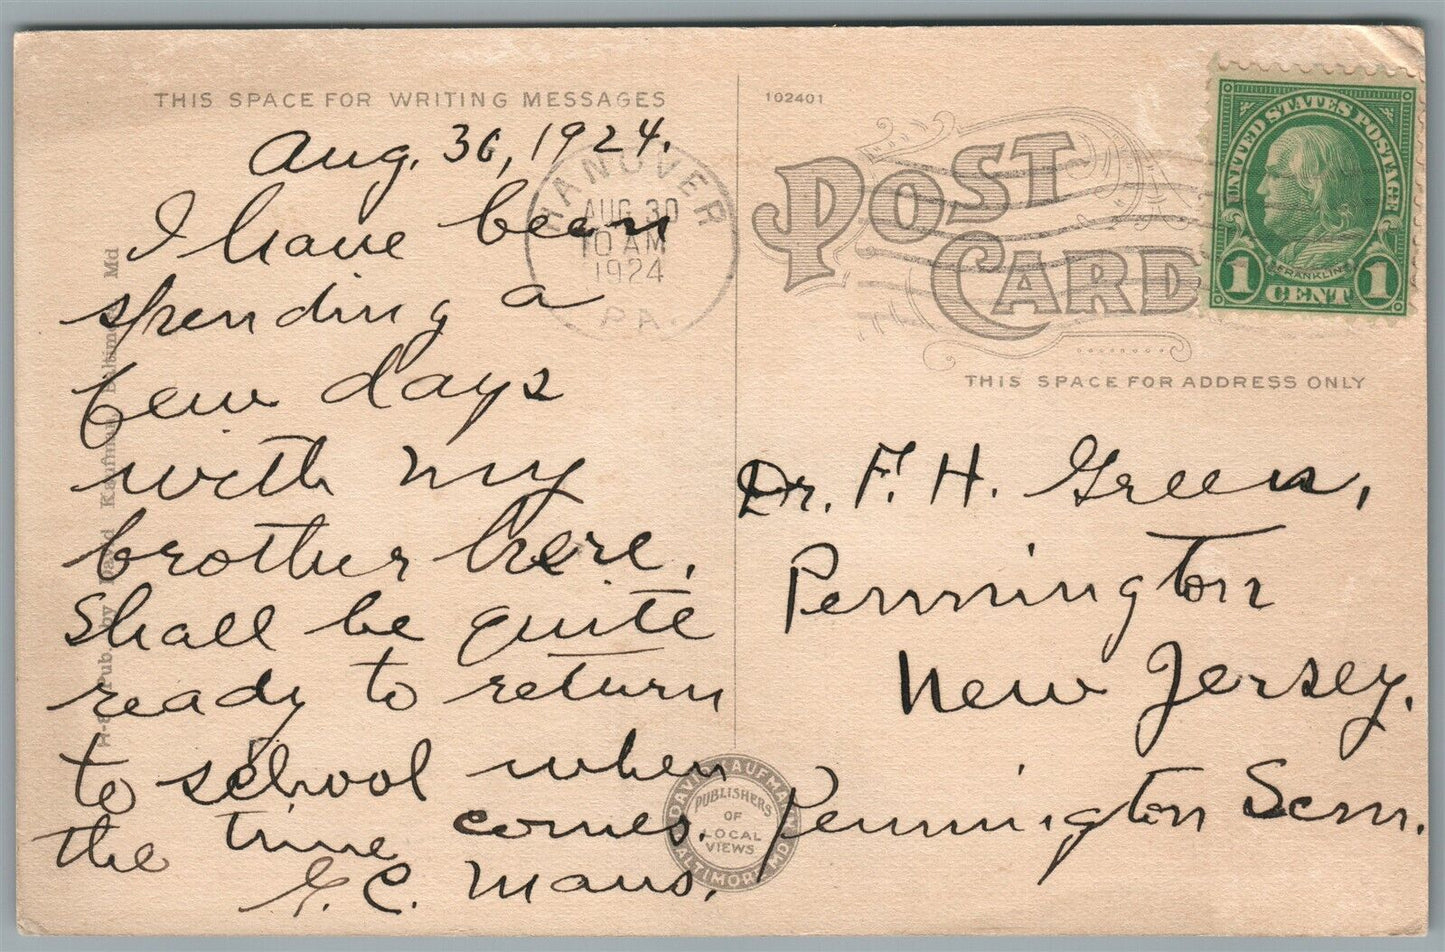 THIS SPACE FOR WRITING MESSAGES
Aug. 30, 1924.
I have been
spending a
few days
with my
brother here.
Shall be quite
ready to return
to school when
the time comes.
G. C. Maus.
HANOVER
AUG 30
10 AM
1924
PA.
H-8 Pub. by David Kaufman, Baltimore Md
102401
POST
CARD
THIS SPACE FOR ADDRESS ONLY
UNITED STATES POSTAGE
FRANKLIN
1 CENT 1
Dr. F. H. Green,
Pennington
New Jersey.
Pennington Sem.
DAVID KAUFMANN
PUBLISHERS
OF
LOCAL
VIEWS
BALTIMORE MD